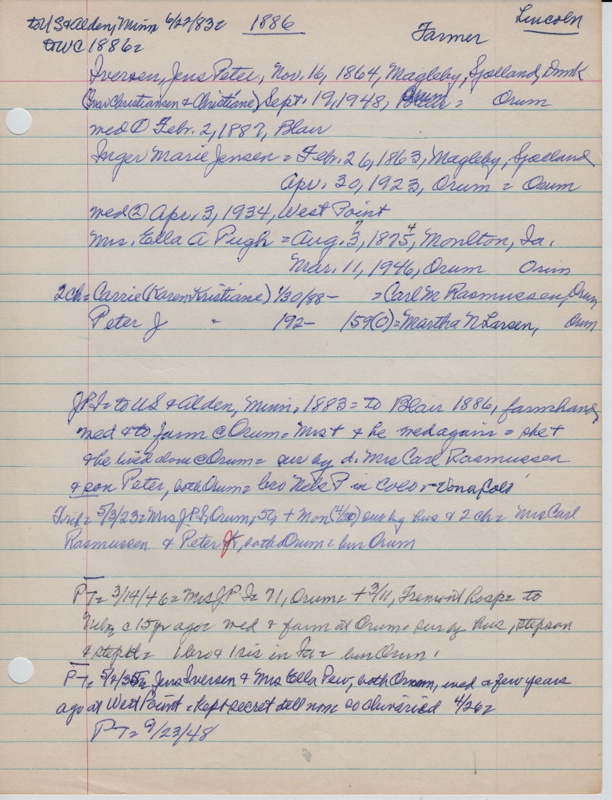 to U S & Alden, Minn 6/22/83= 1886 Lincoln
to WC 1886= Farmer
Iversen, Jens Peter, Nov. 16, 1864, Magleby, Sjolland, Dmk
Christiansen & Christiane) Sept. 19, 1948, Orum = Orum
wed ① Febr. 2, 1887, Blair
Inger Marie Jensen = Febr. 26, 1863, Magleby, Sjolland
Apr. 30, 1923, Orum = Orum
wed ② Apr. 3, 1934, West Point
Mrs. Ella A Pugh = Aug. 3, 1875, Moulton, Ia.
Mar. 11, 1946, Orum Orum
2 ch = Carrie (Karen Kristiane) 1/30/88 – = Carl M Rasmussen, Orum
Peter J " 192– 159(6) = Martha N Larsen, Orum
J P I = to U S & Alden, Minn. 1883 = to Blair 1886, farmhand,
wed & to farm @ Orum = Mrs + & he wed again = she +
& he lived alone @ Orum = sur by d. Mrs Carl Rasmussen
& son Peter, both Orum = bro Nels P in Colo
5/3/23 = Mrs J P I, Orum, 59, + Mon sur by hus & 2 ch = Mrs Carl
Rasmussen & Peter, both Orum = bur Orum
PT = 3/14/46 = Mrs J P I = 71, Orum = + 3/11, Fremont Hosp = to
c 15 yr ago = wed & farm at Orum = sur by hus, stepson
& stepd = 1 bro & 1 sis in Ia = bur Orum.
Jens Iversen & Mrs Ella, both Orum, wed a few years
ago at West Point = kept secret till now so 4/26=
PT = 9/23/48